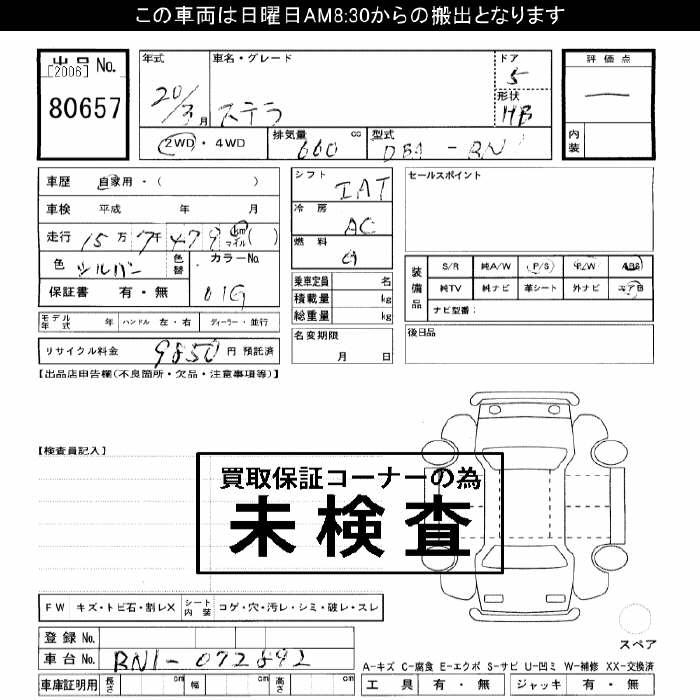 この車両は日曜日AM8:30からの搬出となります
出品 No. [2006] 80657
年式 20/3月
車名・グレード ステラ
ドア 5
形状 HB
2WD・4WD
排気量 660 cc
型式 DBA-RN1
評価点 一
内装
車歴 自家用・( )
車検 平成 年 月
走行 15万7千479 km マイル ( )
色 シルバー 色替
カラーNo. 01G
保証書 有・無
シフト IAT
冷房 AC
燃料 G
乗車定員 名
積載量 kg
総重量 kg
名変期限 月 日
セールスポイント
装備品 S/R 純A/W P/S P/W ABS
純TV 純ナビ 革シート 外ナビ エアB
ナビ型番:
後日品
モデル年式 年 ハンドル 左・右 ディーラー・並行
リサイクル料金 9850 円 預託済
【出品店申告欄(不良箇所・欠品・注意事項等)】
【検査員記入】
買取保証コーナーの為
未検査
FW キズ・トビ石・割レX シート内装 コゲ・穴・汚レ・シミ・破レ・スレ
登録No.
車台No. RN1-072892
車庫証明用 長さ cm 幅 cm 高さ cm
スペア
A-キズ C-腐食 E-エクボ S-サビ U-凹ミ W-補修 XX-交換済
工具 有・無 ジャッキ 有・無